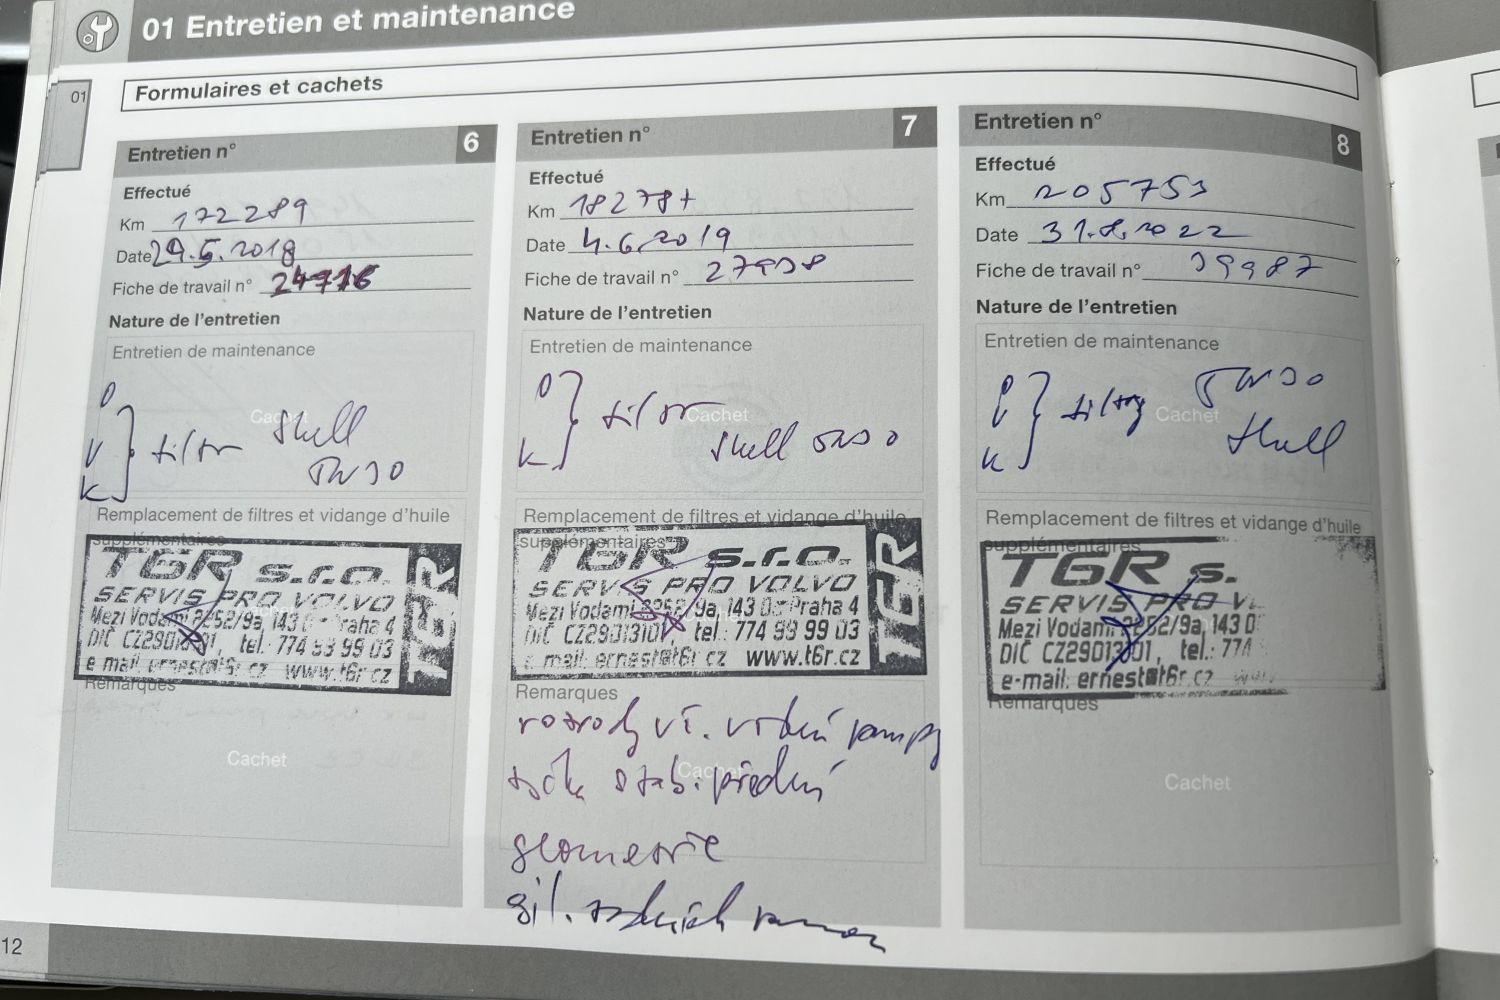 01 Entretien et maintenance
01
Formulaires et cachets
Entretien n° 6
Effectué
Km 172289
Date 29.5.2018
Fiche de travail n° 24716
Nature de l'entretien
Entretien de maintenance
O
V
K
} filtr Shell
5W30
Cachet
Remplacement de filtres et vidange d'huile
supplémentaires
T6R s.r.o.
SERVIS PRO VOLVO
Mezi Vodami 2252/9a, 143 0 Praha 4
DIČ CZ29013101, tel.: 774 99 99 03
e mail: ernest@t6r.cz www.t6r.cz
T6R
Remarques
Cachet
Entretien n° 7
Effectué
Km 182787
Date 4.6.2019
Fiche de travail n° 27938
Nature de l'entretien
Entretien de maintenance
O
K
} filtr
Shell 5W30
Cachet
Remplacement de filtres et vidange d'huile
supplémentaires
T6R s.r.o.
SERVIS PRO VOLVO
Mezi Vodami 2252/9a, 143 0 Praha 4
DIČ CZ29013101, tel.: 774 99 99 03
e mail: ernest@t6r.cz www.t6r.cz
T6R
Remarques
rozvody vč. vodní pumpy
Cachet
stab. přední
geometrie
sil. zadních ramen
Entretien n° 8
Effectué
Km 205753
Date 31.8.2022
Fiche de travail n° 39987
Nature de l'entretien
Entretien de maintenance
V
K
} filtry 5W30
Shell
Cachet
Remplacement de filtres et vidange d'huile
supplémentaires
T6R s.
SERVIS PRO V
Mezi Vodami 2252/9a, 143 0
DIČ CZ29013101, tel.: 774
e-mail: ernest@t6r.cz
Remarques
Cachet
12